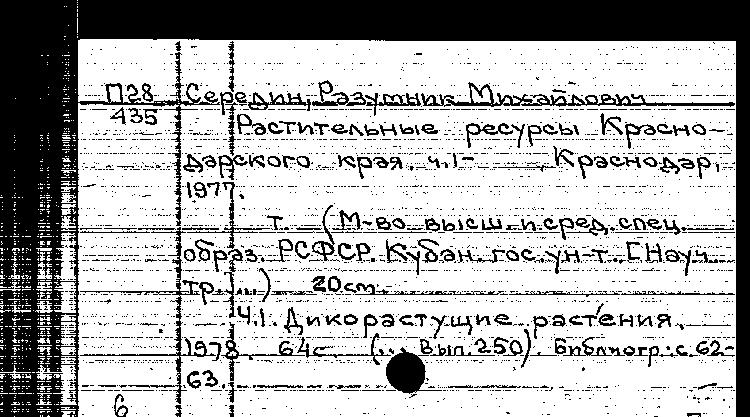 П28 Середин, Разумник Михайлович
435
Растительные ресурсы Красно-
дарского края. ч.1- , Краснодар,
1977.
т. (М-во высш. и сред. спец.
образ. РСФСР. Кубан. гос. ун-т. [Науч.
тр. ...) 20см.
Ч.1. Дикорастущие растения.
1978. 64с (... Вып. 250). Библиогр.: с. 62-
63.
6